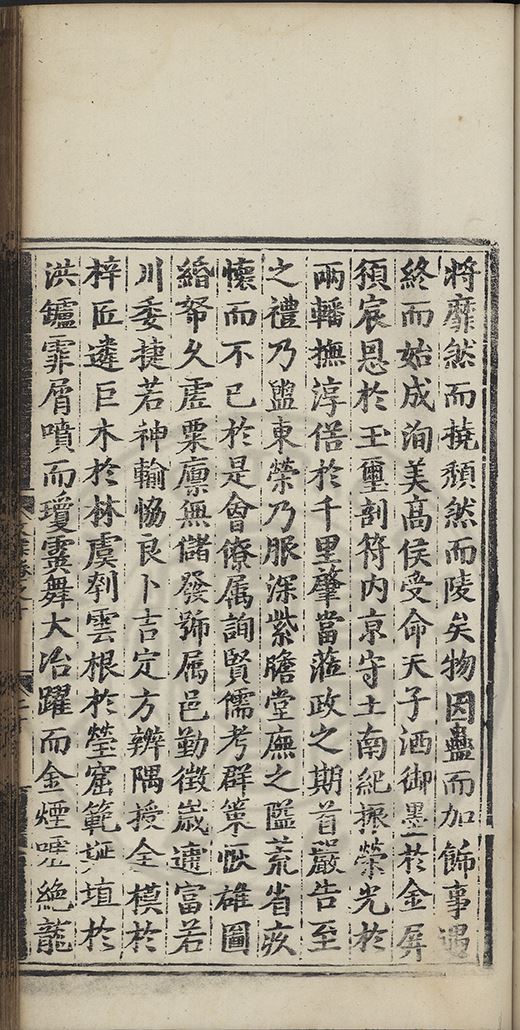 將靡然而撓頹然而陵矣物因蠱而加飾事遇
終而始成洵美高侯受命天子洒御墨於金屏
須宸恩於玉璽剖符内京守土南紀振榮光於
兩轓撫淳俗於千里肇當蒞政之期首嚴告至
之禮乃盥東榮乃服深紫瞻堂廡之隘荒省疚
懷而不已於是會僚属詢賢儒考群策恢雄圖
緡帑久虛粟廪無儲發號属邑勤徴嵗逋富若
川委捷若神輸恊良卜吉定方辨隅授全模於
梓匠遴巨木於林虞刳雲根於瑩窟範埏埴於
洪鑪霏屑噴而瓊霙舞大冶躍而金煙噓絶龍